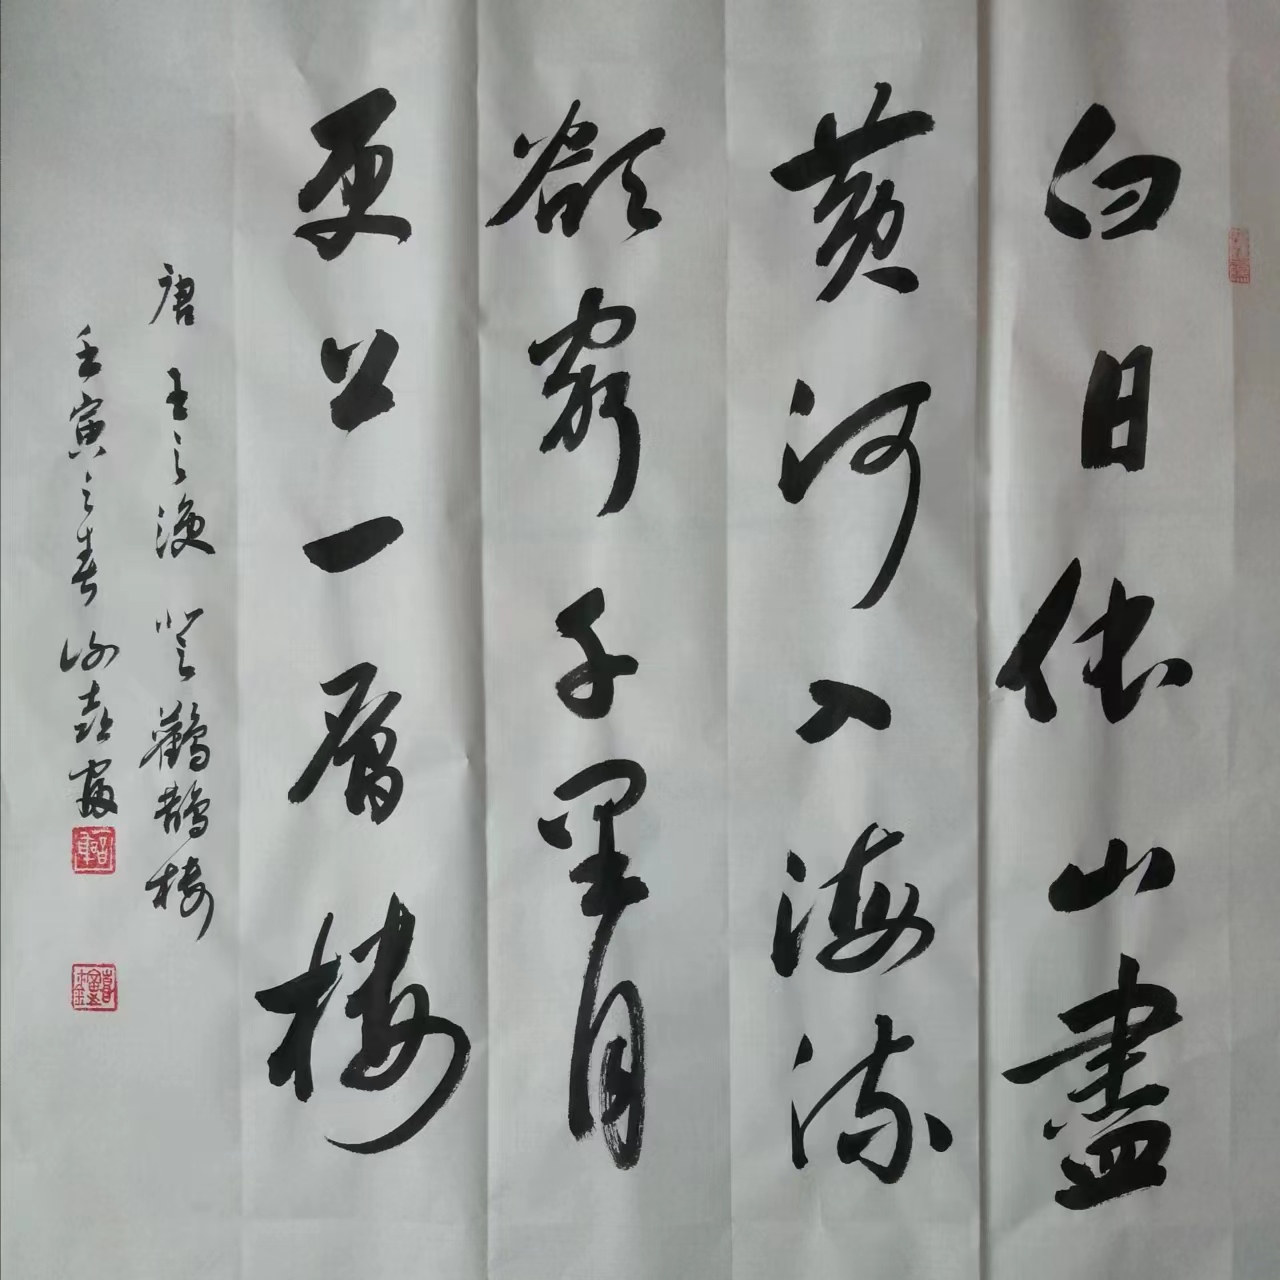 白日依山盡
黄河入海流
欲窮千里目
更上一層樓
唐王之渙登鸛鵲樓
壬寅之春